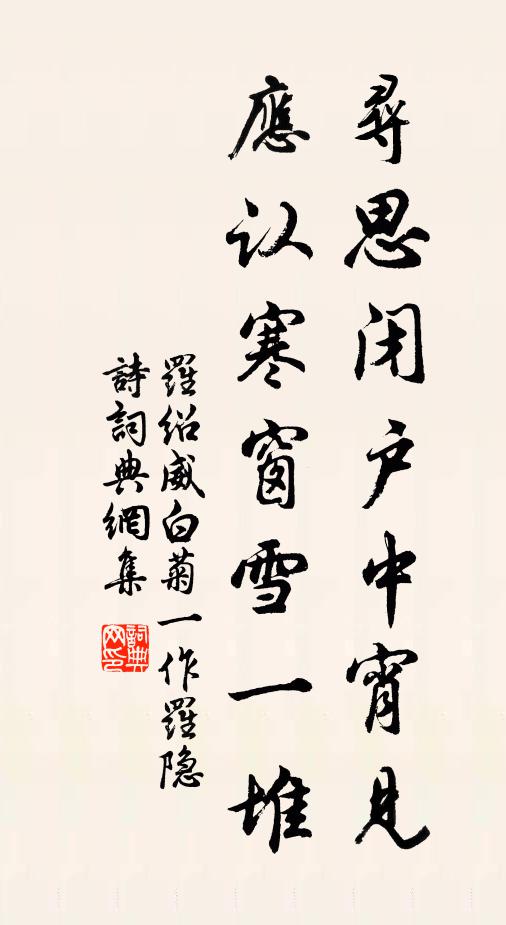 尋思闭户中宵見
應认寒窗雪一堆
羅紹威白菊一作羅隐
詩詞典網集
詞典
网印